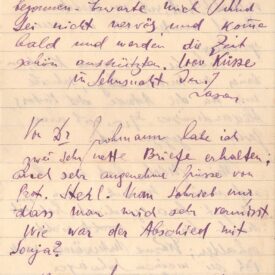 begonnen. Erwarte mich und
sei nicht nervös und komme
bald und werden die Zeit
schön ausnützen. 1000 Küsse
in Sehnsucht Dein
Lasar.
Von Dr Grohmann habe ich
zwei sehr nette Briefe erhalten,
auch sehr angenehme Grüsse von
Prof. Sterl. Man schrieb mir
dass man mich sehr vermisst
Wie war der Abschied mit
Sonja?